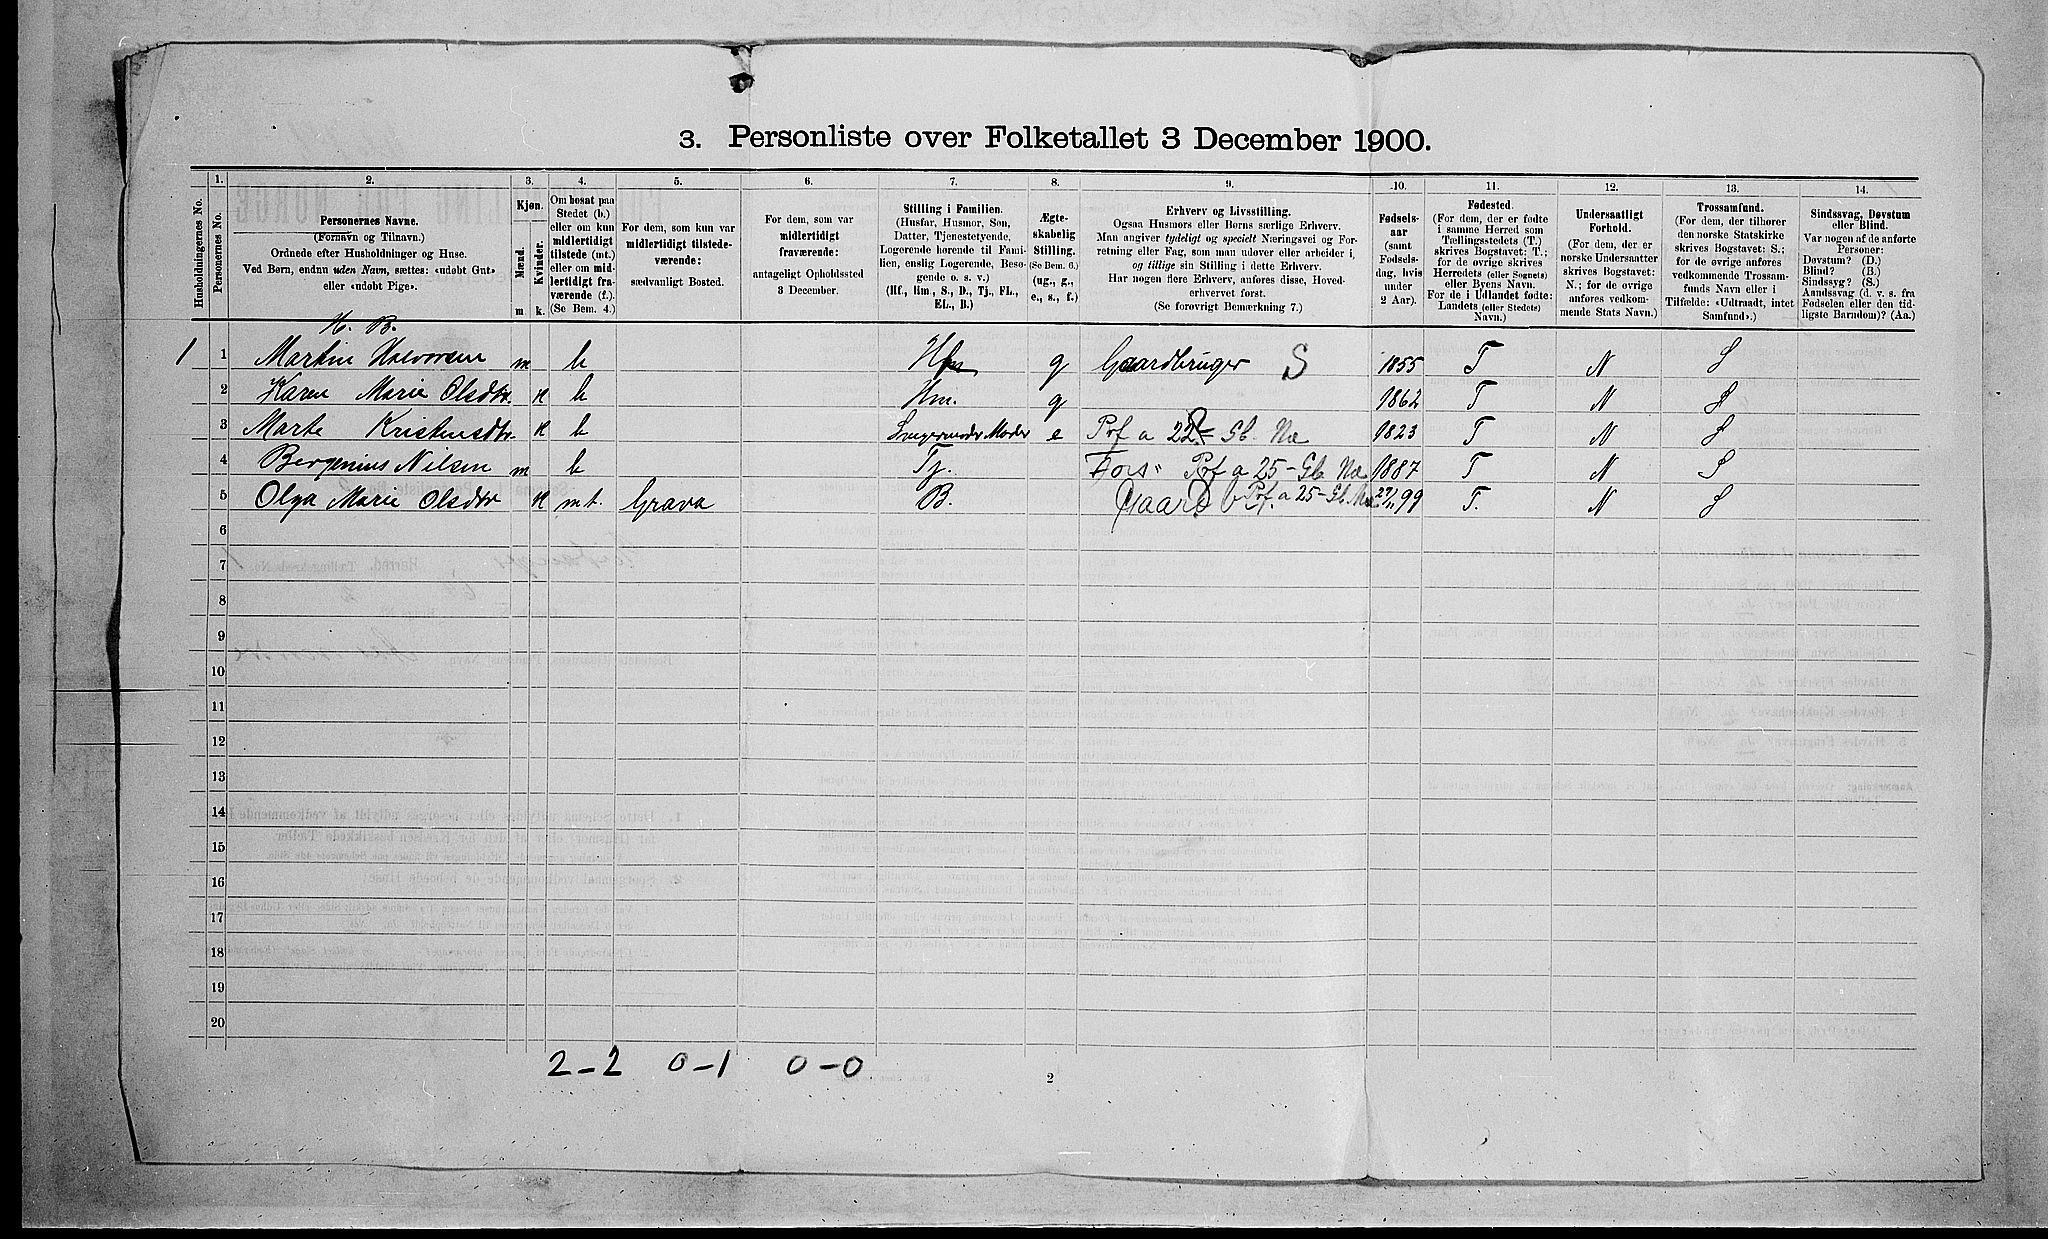 3. Personliste over Folketallet 3 December 1900.
1. 2. 3. 4. 5. 6. 7. 8. 9. 10. 11. 12. 13. 14.
Husholdningernes No.
Personernes No.
Personernes Navne.
(Fornavn og Tilnavn.)
Ordnede efter Husholdninger og Huse.
Ved Børn, endnu uden Navn, sættes: «udøbt Gut»
eller «udøbt Pige».
Kjøn.
Mænd.
Kvinder.
m. k.
Om bosat paa
Stedet (b.)
eller om kun
midlertidigt
tilstede (mt.)
eller om mid-
lertidigt fra-
værende (f.).
(Se Bem. 4.)
For dem, som kun var
midlertidigt tilstede-
værende:
sædvanligt Bosted.
For dem, som var
midlertidigt
fraværende:
antageligt Opholdssted
3 December.
Stilling i Familien.
(Husfar, Husmor, Søn,
Datter, Tjenestetyende,
Logerende hørende til Fami-
lien, enslig Logerende, Besø-
gende o. s. v.)
(Hf., Hm., S., D., Tj., FL.,
EL., B.)
Ægte-
skabelig
Stilling.
(Se Bem. 6.)
(ug., g.,
e., s., f.)
Erhverv og Livsstilling.
Ogsaa Husmors eller Børns særlige Erhverv.
Man angiver tydeligt og specielt Næringsvei og For-
retning eller Fag, som man udøver eller arbeider i,
og tillige sin Stilling i dette Erhverv.
Har nogen flere Erhverv, anføres disse, Hoved-
erhvervet først.
(Se forøvrigt Bemærkning 7.)
Fødsels-
aar
(samt
Fødsels-
dag, hvis
under
2 Aar).
Fødested.
(For dem, der er fødte
i samme Herred som
Tællingsstedets (T.)
skrives Bogstavet: T.;
for de øvrige skrives
Herredets (eller Sognets)
eller Byens Navn.
For de i Udlandet fødte:
Landets (eller Stedets)
Navn.)
Undersaatligt
Forhold.
(For dem, der er
norske Undersaatter
skrives Bogstavet:
N.; for de øvrige
anføres vedkom-
mende Stats Navn.)
Trossamfund.
(For dem, der tilhører
den norske Statskirke
skrives Bogstavet: S.;
for de øvrige anføres
vedkommende Trossam-
funds Navn eller i
Tilfælde: «Udtraadt, intet
Samfund».)
Sindssvag, Døvstum
eller Blind.
Var nogen af de anførte
Personer:
Døvstum? (D.)
Blind? (B.)
Sindssyg? (S.)
Aandssvag (d. v. s. fra
Fødselen eller den tid-
ligste Barndom)? (Aa.)
H. B.
1 1 Martin Halvorsen m b g Gaardbruger S 1855 T N S
2 Karen Marie Olsdtr. k b Hm. g 1862 T N S
3 Marte Kristensdtr. k b Svigermoder Moder e Prf a Gb. Na 1823 T N S
4 Bergenius Nilsen m b Tj. Fors. Prf a 25 - Gb. Na 1887 T N S
5 Olga Marie Olsdtr k mt. Grava B. Gaardb Prf. a 25 - Gb. Na 99 T. N S
6
7
8
9
10
11
12
13
14
15
16
17
18
19
20
2 - 2 0 - 1 0 - 0
2